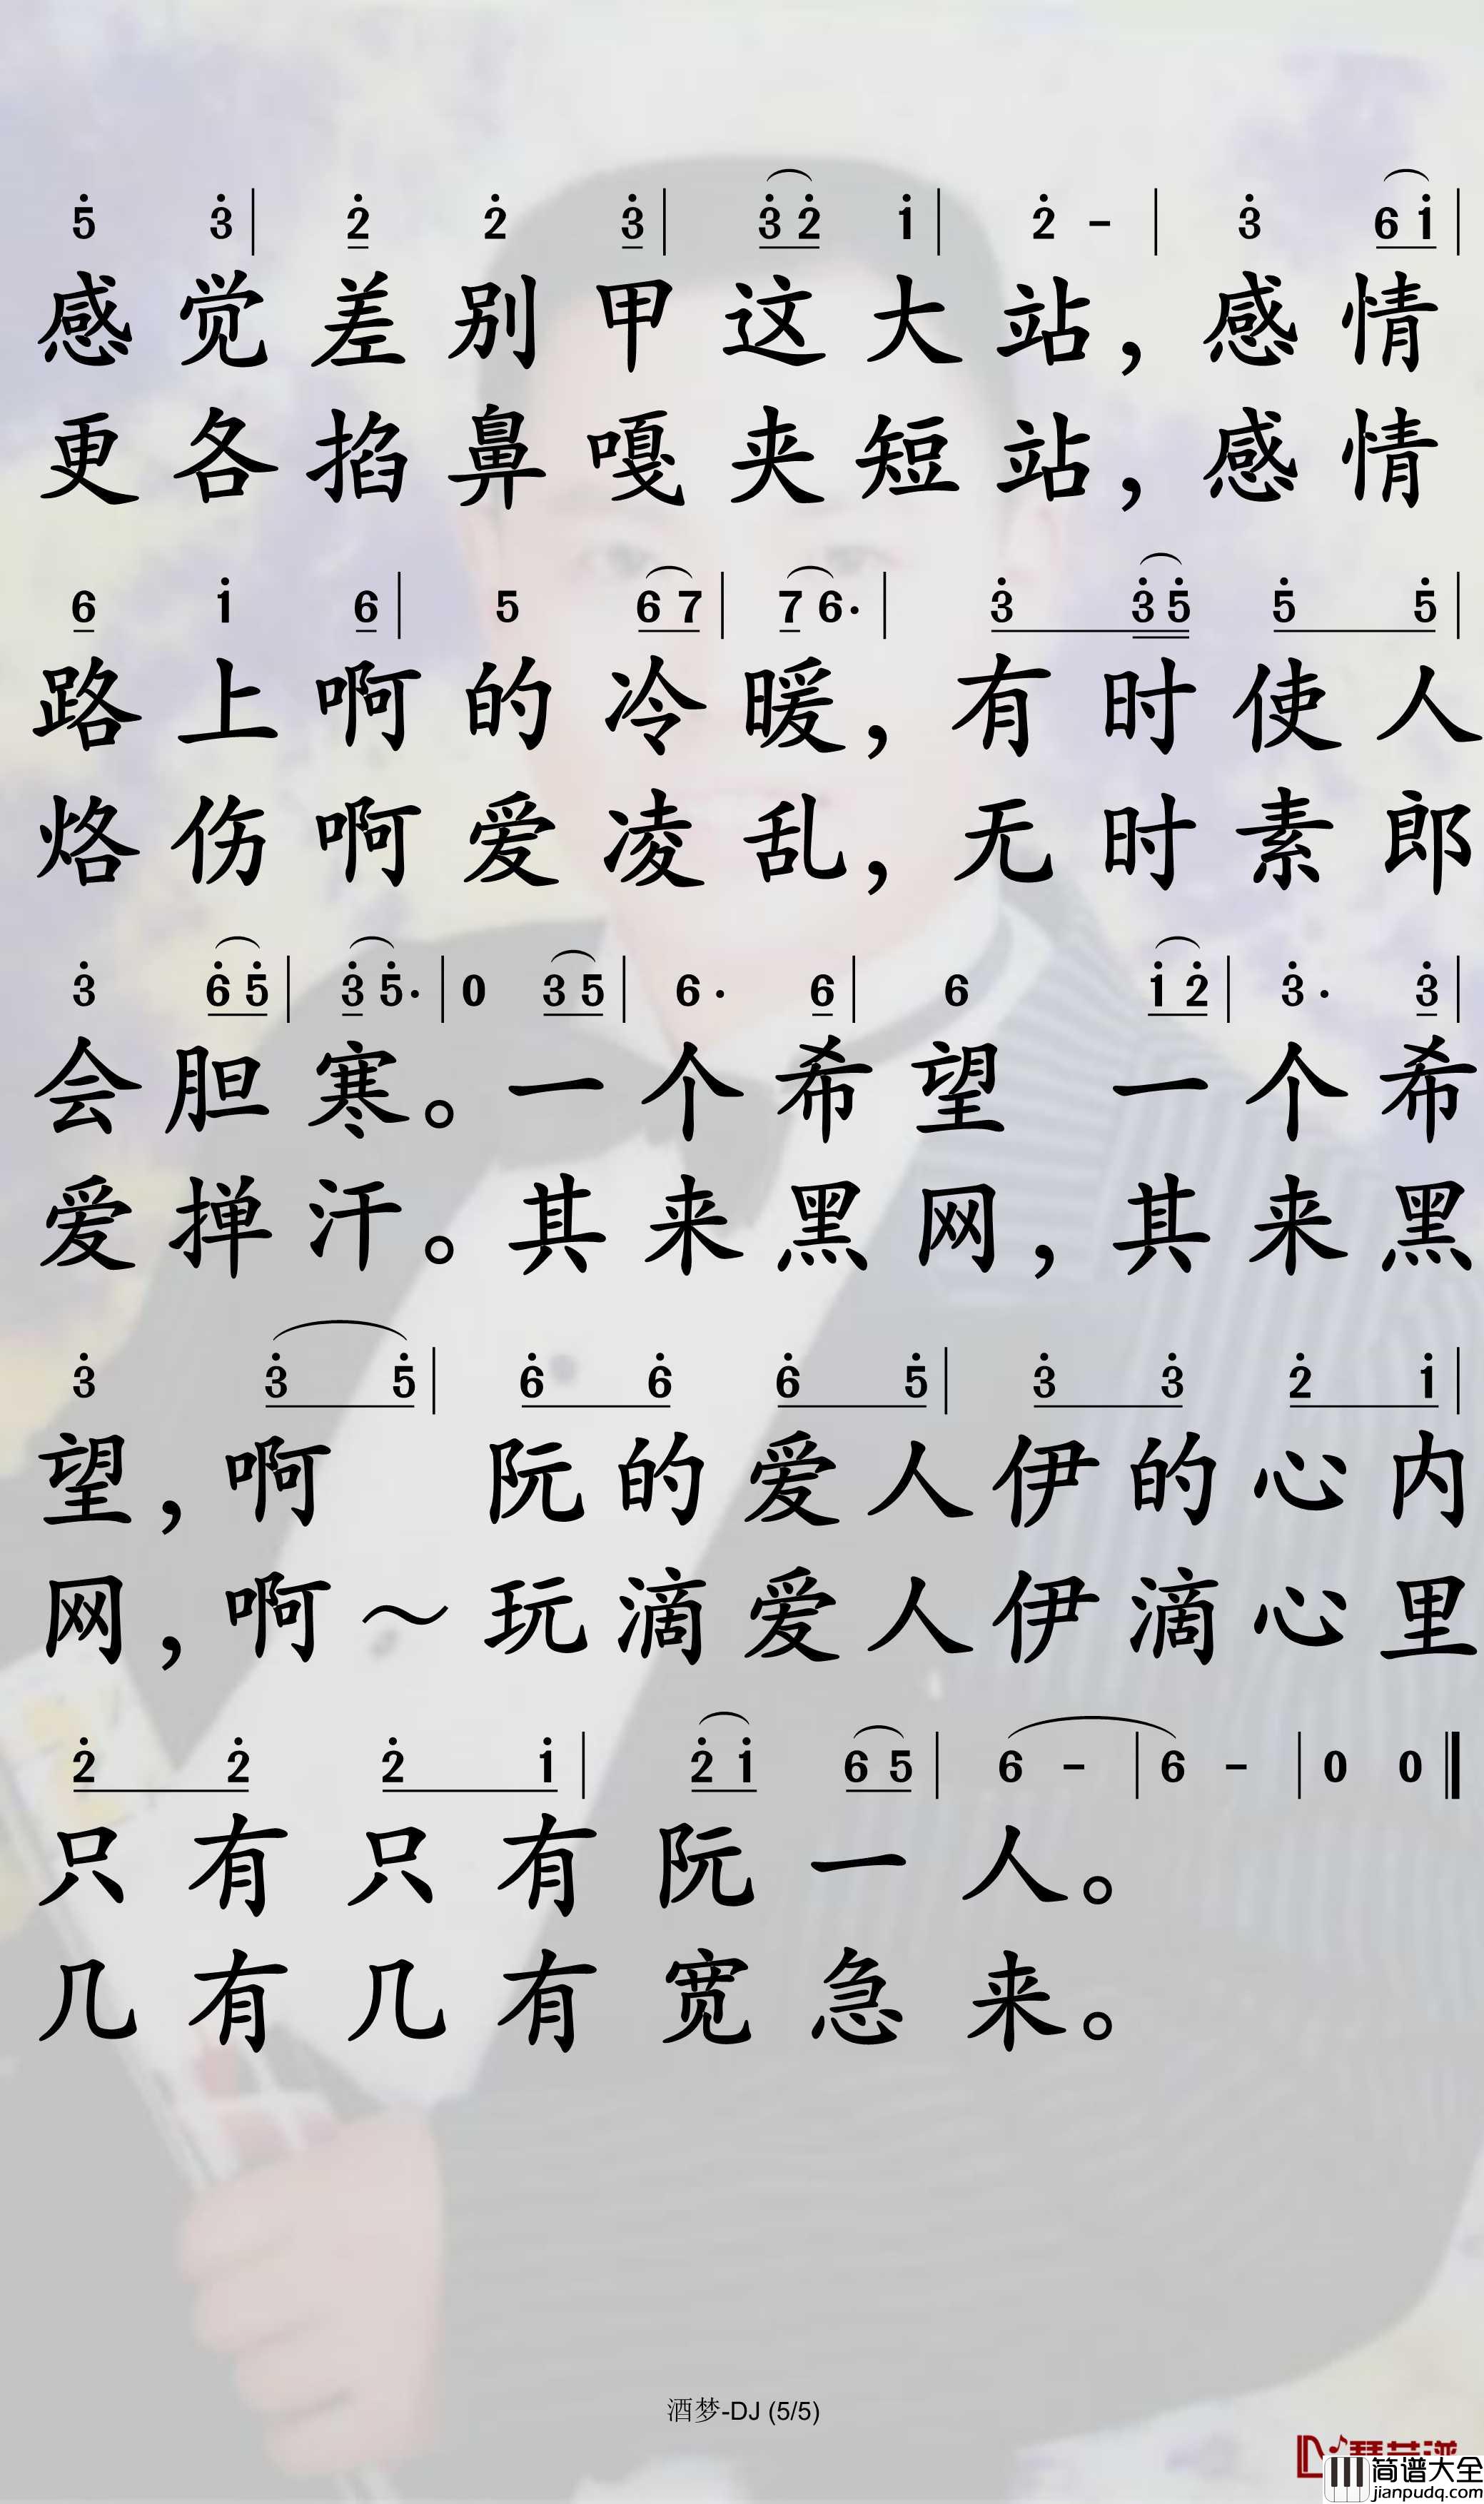 5 3 | 2 2 3 | 3 2 1 | 2 - | 3 6 1 |
感觉差别甲这大站，感情
更各掐鼻嘎夹短站，感情
6 1 6 | 5 6 7 | 7 6· | 3 3 5 5 5 |
路上啊的冷暖，有时使人
烙伤啊爱凌乱，无时素郎
3 6 5 | 3 5· | 0 3 5 | 6· 6 | 6 1 2 | 3· 3 |
会胆寒。一个希望 一个希
爱掸汗。其来黑网，其来黑
3 3 5 | 6 6 6 5 | 3 3 2 1 |
望，啊 阮的爱人伊的心内
网，啊～玩滴爱人伊滴心里
2 2 2 1 | 2 1 6 5 | 6 - | 6 - | 0 0 ‖
只有只有阮一人。
几有几有宽急来。
酒梦-DJ (5/5)
简谱大全
jianpudq.com